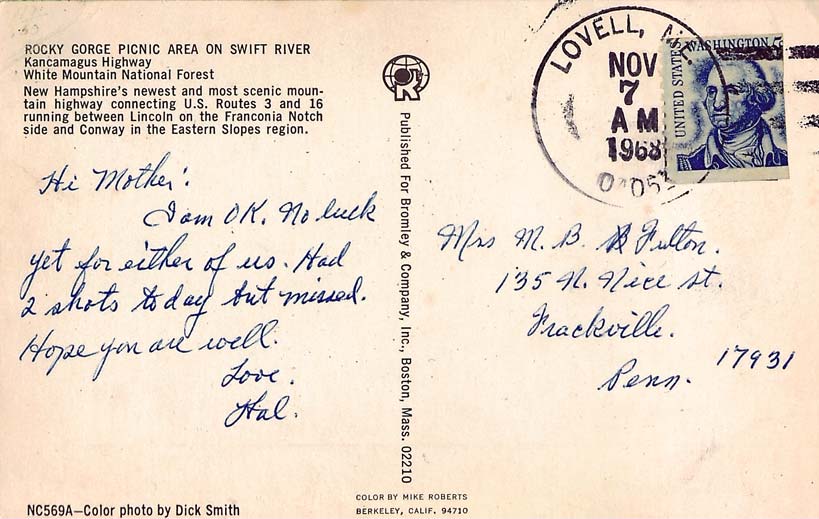 ROCKY GORGE PICNIC AREA ON SWIFT RIVER
Kancamagus Highway
White Mountain National Forest
New Hampshire's newest and most scenic moun-
tain highway connecting U.S. Routes 3 and 16
running between Lincoln on the Franconia Notch
side and Conway in the Eastern Slopes region.
Hi Mother!
I am OK. No luck
yet for either of us. Had
2 shots today but missed.
Hope you are well.
Love.
Hal.
NC569A—Color photo by Dick Smith
R
Published For Bromley & Company, Inc., Boston, Mass. 02210
COLOR BY MIKE ROBERTS
BERKELEY, CALIF. 94710
LOVELL, ME.
NOV
7
AM
1968
UNITED STATES
WASHINGTON 5c
Mrs M. B. Fulton.
135 N. Nice st.
Frackville.
Penn. 17931